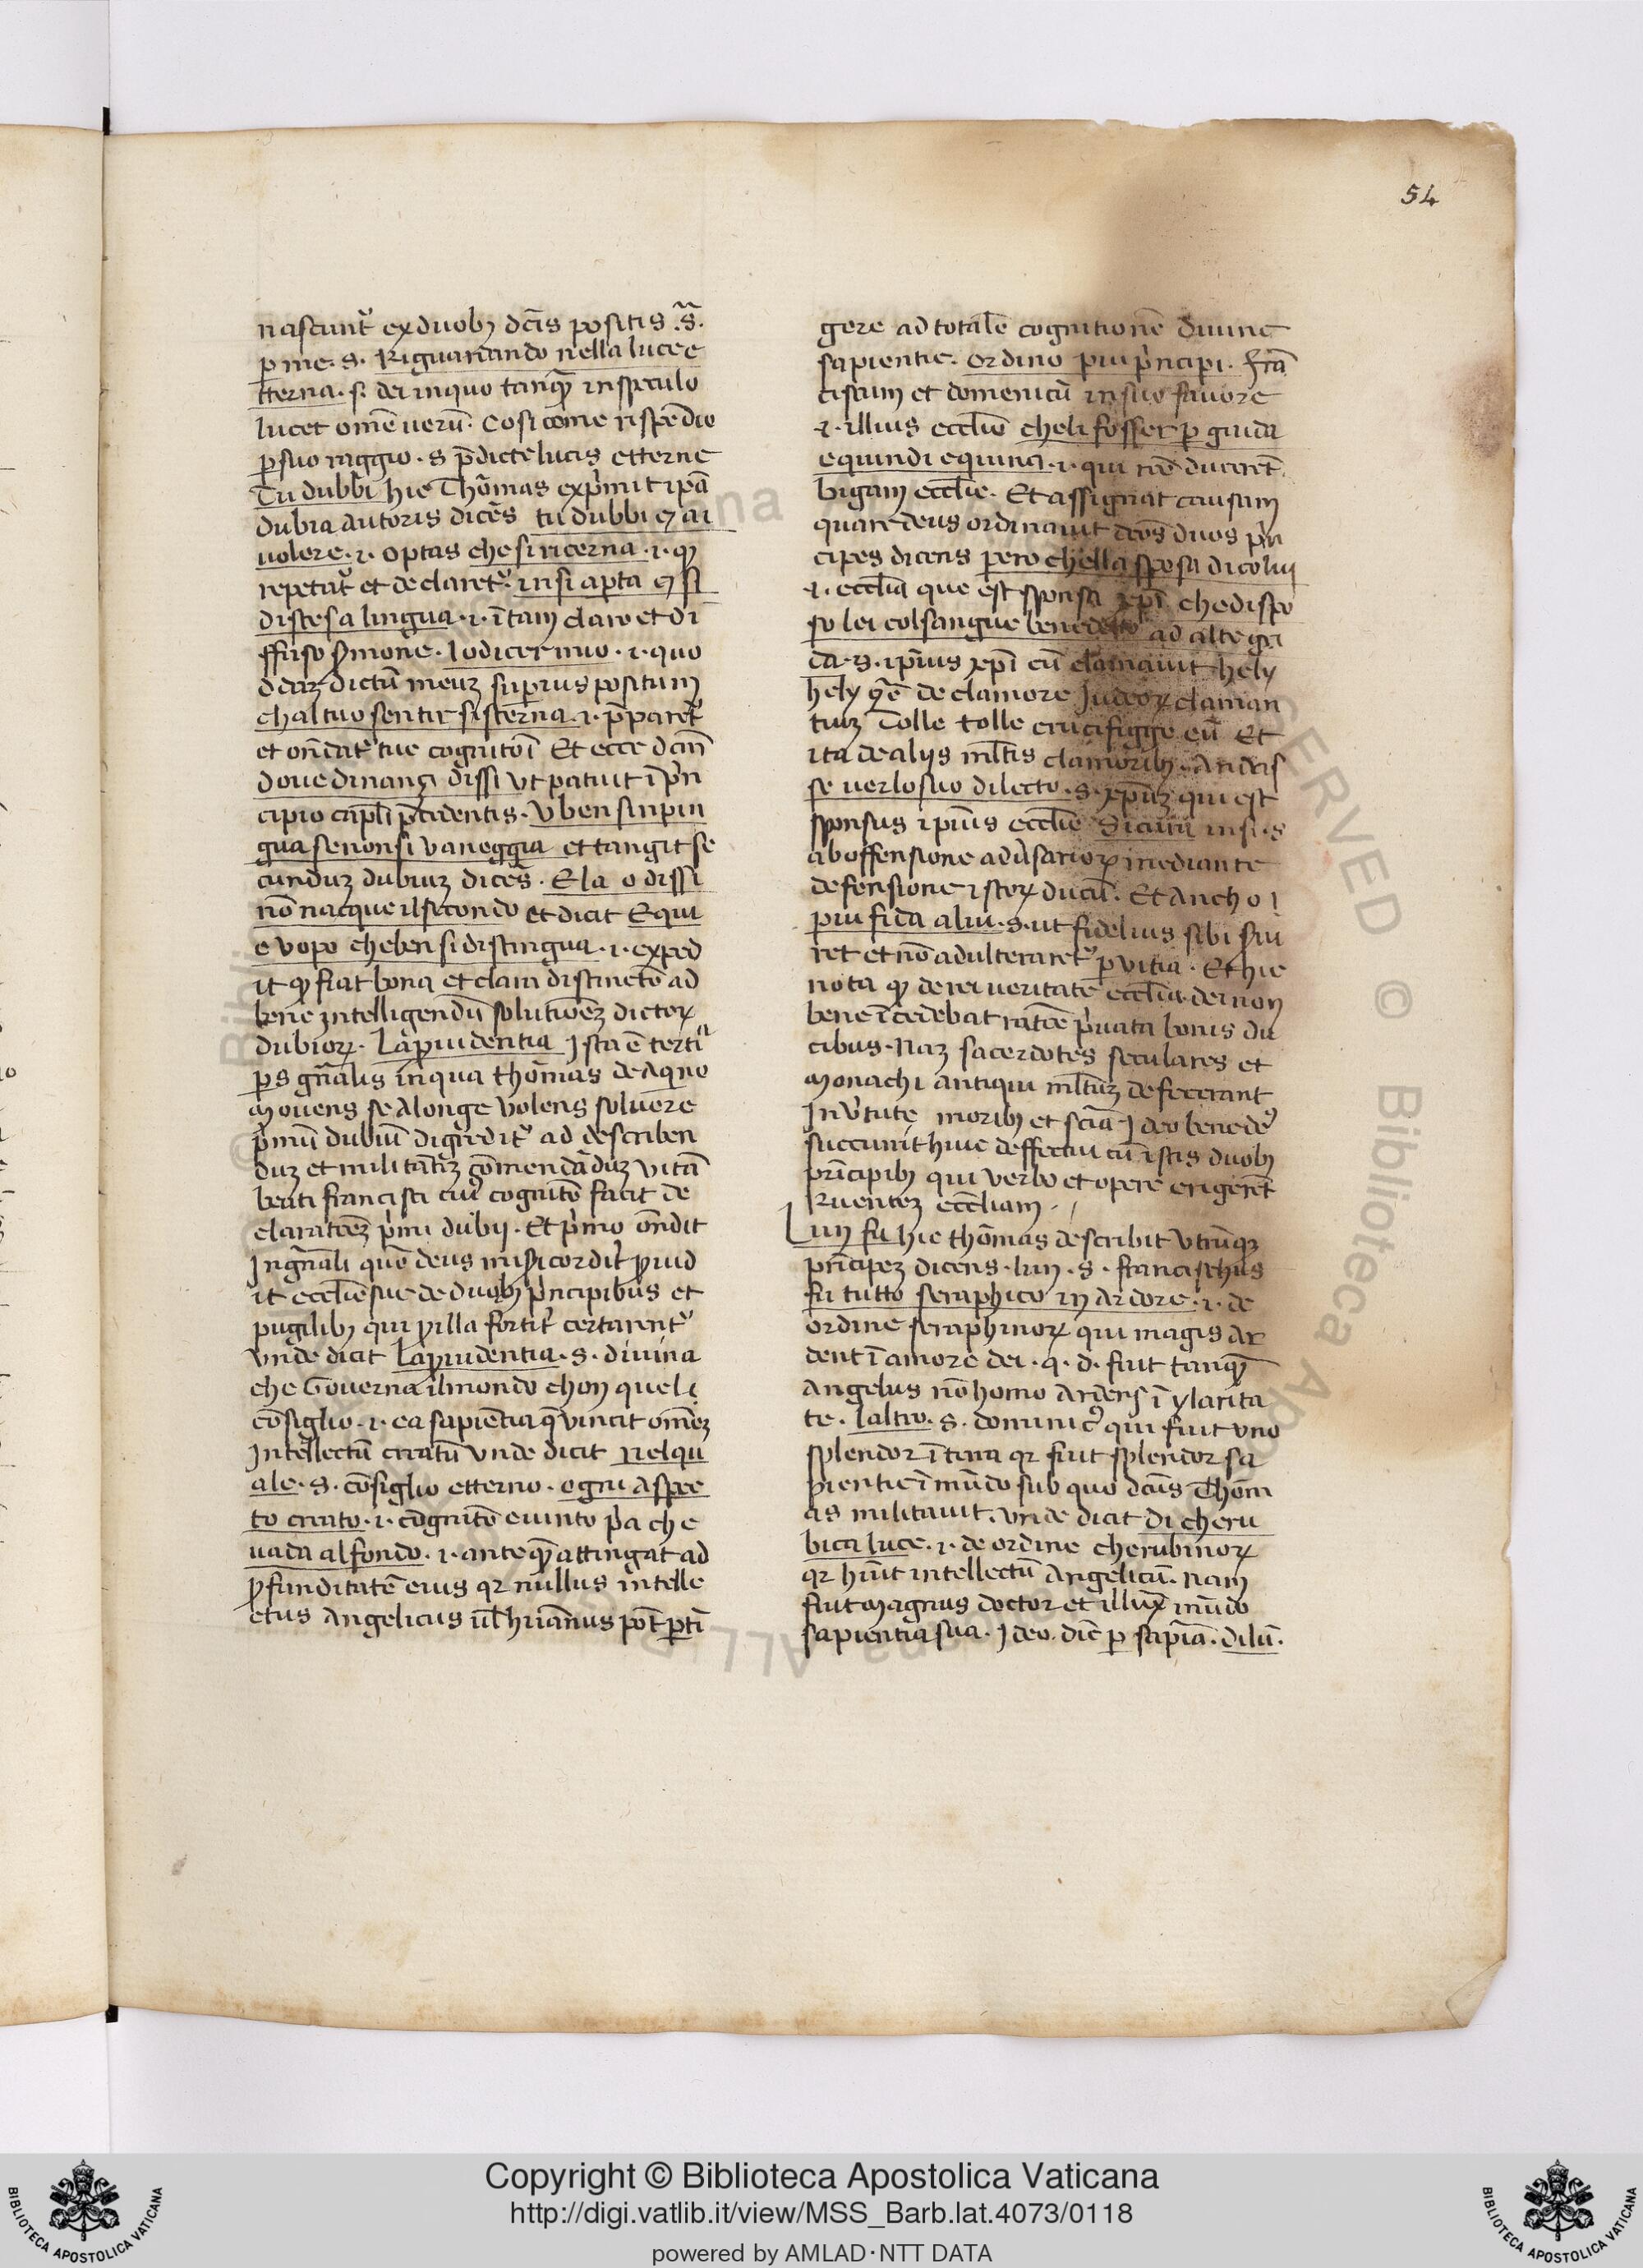 54
nascunt᷑ ex duobꝫ dc̄is positis .s̄.
ꝑ me. s. Riguardando nella luce e
tterna. s. dei in quo tanqȝ in speculo
lucet omē uerū. Cosi come rispēdio
ꝑ suo raggio. s p̄dicte lucis etterne
Tu dubbi hic Thōmas exp̍mit ip̄a
dubia autoris dicēs tu dubbi ⁊ ai
uolere. i. optas che si ricerna. i. qȝ
repetat᷑ et declaret᷑. in si apta ⁊ si
distesa lingua. i. ī tam claro et di
ffuso ẜmone. lo dicer mio. i. quo
ddaꝫ dictū meuꝫ suꝑius positum
chal tuo sentir si sterna. i. p̄paret᷑
et on̄dat᷑ tue cognitōi Et ecce dcm̄
doue dinanzi dissi vt patuit ī p̍n
cipio cap̄li p̄cidentis. V ben s inpin
gua se non si vaneggia et tangit se
cunduꝫ dubiuꝫ dicēs. E la o dissi
nō nacque il secondo et dicit E qui
e vopo che ben si distingua. i. exped
it qȝ fiat bona et clara distinctō ad
bene intelligendū solutiōeꝫ dictoꝝ
dubioꝝ. La ꝓuidentia Ista ē terti
ps gn̄alis in qua thōmas de Aquino
Mouens se Alonge volens soluere
p̍mū dubiū digredit᷑ ad describen
duꝫ et militantꝫ cōmendāduꝫ vitā
beati francisci cuiꝰ cognitō facit de
claratōeꝫ p̍mi dubij. Et p̍mo on̄dit
In gn̄ali quō deus misicordit᷑ ꝓuid
it ecclīe sue de duobꝫ p̍ncipibus et
pugilibꝫ qui ꝓ illa fortit᷑ certarent᷑
Vnde dicit La ꝓuidentia. s. diuina
che Gouerna il mondo chon quel
cōsiglio. i. ea sapientia q̄ vincit omēꝫ
Intellectū creatū vnde dicit nel qu
ale. s. cōsiglio etterno. ogni aspec
to creato. i. cognitō e uinto p̍a che
uada al fondo. i. ante qȝ attingat ad
ꝓfunditatē eius qꝛ nullus intelle
ctus Angelicus ul̄ hūanus pōt ꝑti
gere ad totalē cognitionē diuine
sapientie. ordino piu p̍ncipi. frā
ciscum et domenicū in suo fauore
i. illius ecclīe che li fosser ꝑ guida
e quindi e quinci. i. qui
bigam ecclīe. Et assignat causam
quare deus ordinauit dc̄os duos p̍n
cipes dicens pero che lla sposa di colui
i. ecclīa que est sponsa xp̄i che dispo
so lei col sangue benedetto ad alte gri
da. s. ipsius xp̄i cū clamauit hely
hely de clamore Iudeoꝝ claman
tiuꝫ Tolle tolle crucifigge eū Et
ita de alijs ml̄tis clamoribꝫ. Andas
se uer lo suo dilecto. s. xp̄uꝫ qui est
sponsus ipsius ecclīe Sicura in si. s
ab offensione aduẜarioꝝ mediante
defensione istoꝝ ducū. Et Ancho i
piu fida a lui. s. ut fidelius sibi ẜui
ret et nō adulteraret᷑ ꝑ vitia. Et hic
nota qȝ de rei veritate ecclīa dei non
bene īcedebat p̍uata bonis du
cibus. Naꝫ sacerdotes seculares et
Monachi antiqui ml̄tuꝫ defecerant
In v̍tute moribꝫ et scīa Ideo bene deꝰ
succurrit huic deffectui cū istis duobꝫ
principibꝫ qui verbo et opere erigerēt
Ruenteꝫ eccliam.
Lun fu hic thōmas describit vtrūqꝫ
prīcipeꝫ dicens. lun. s. francischus
fu tutto seraphico in Ardore. i. de
ordine seraphinoꝝ qui magis Ar
dent ī amore dei. q. d. fuit tanqȝ
Angelus nō homo Ardens ī ylarita
te. laltro. s. dominicꝰ qui fuit vno
splendor ī terra qꝛ fuit splendor sa
pientie ī mūdo sub quo dc̄us Thom
as militauit. vnde dicit di cheru
bica luce. i. de ordine cherubinoꝝ
qꝛ hūit intellectū Angelicū. nam
fuit Magnus doctor et illux̄ mūdo
sapientia sua. Ideo dic̄ ꝑ sapīa. di lū.
Copyright © Biblioteca Apostolica Vaticana
http://digi.vatlib.it/view/MSS_Barb.lat.4073/0118
powered by AMLAD·NTT DATA
BIBLIOTECA APOSTOLICA VATICANA
BIBLIOTECA APOSTOLICA VATICANA